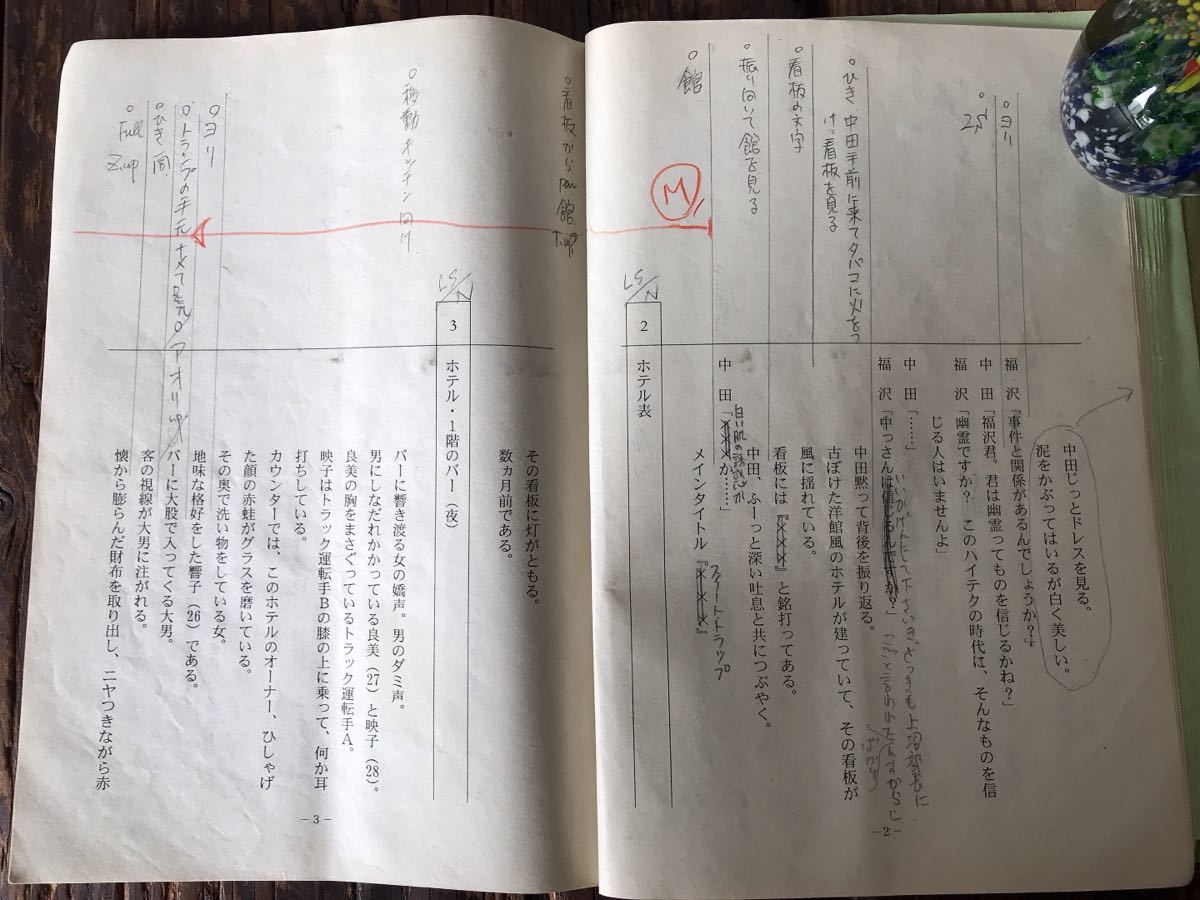 中田じっとドレスを見る。
泥をかぶってはいるが白く美しい。
○ヨリ
福 沢「事件と関係があるんでしょうか？」
○2S
中 田「福沢君。君は幽霊ってものを信じるかね？」
福 沢「幽霊ですか？ このハイテクの時代に、そんなものを信
じる人はいませんよ」
中 田「……」
いいかげんにして下さいよ、さっきも上沼部長に
福 沢「中っさんは信じるんですか？」
ばかり
○ひき、中田手前に来てタバコに火をつ
けつつ看板を見る
中田黙って背後を振り返る。
古ぼけた洋館風のホテルが建っていて、その看板が
風に揺れている。
○看板の文字
看板には『×××』と銘打ってある。
○振り向いて館を見る
中田、ふーっと深い吐息と共につぶやく。
中 田「×××か……」
○館
M
メインタイトル『×××』
スイート・トラップ
LS/N
2 ホテル表
－2－
○看板からpan館 T.up
その看板に灯がともる。
数ヵ月前である。
LS/N
3 ホテル・1階のバー（夜）
○移動 キッチン向け
バーに響き渡る女の嬌声。男のダミ声。
男にしなだれかかっている良美（27）と映子（28）。
良美の胸をまさぐっているトラック運転手A。
映子はトラック運転手Bの膝の上に乗って、何か耳
打ちしている。
カウンターでは、このホテルのオーナー、ひしゃげ
た顔の赤蛙がグラスを磨いている。
その奥で洗い物をしている女。
○ヨリ
地味な格好をした響子（26）である。
○トランプの手元ナメて足元。アオリup
バーに大股で入ってくる大男。
○ひき 同
客の視線が大男に注がれる。
○Full
Z.up
懐から膨らんだ財布を取り出し、ニヤつきながら赤
－3－